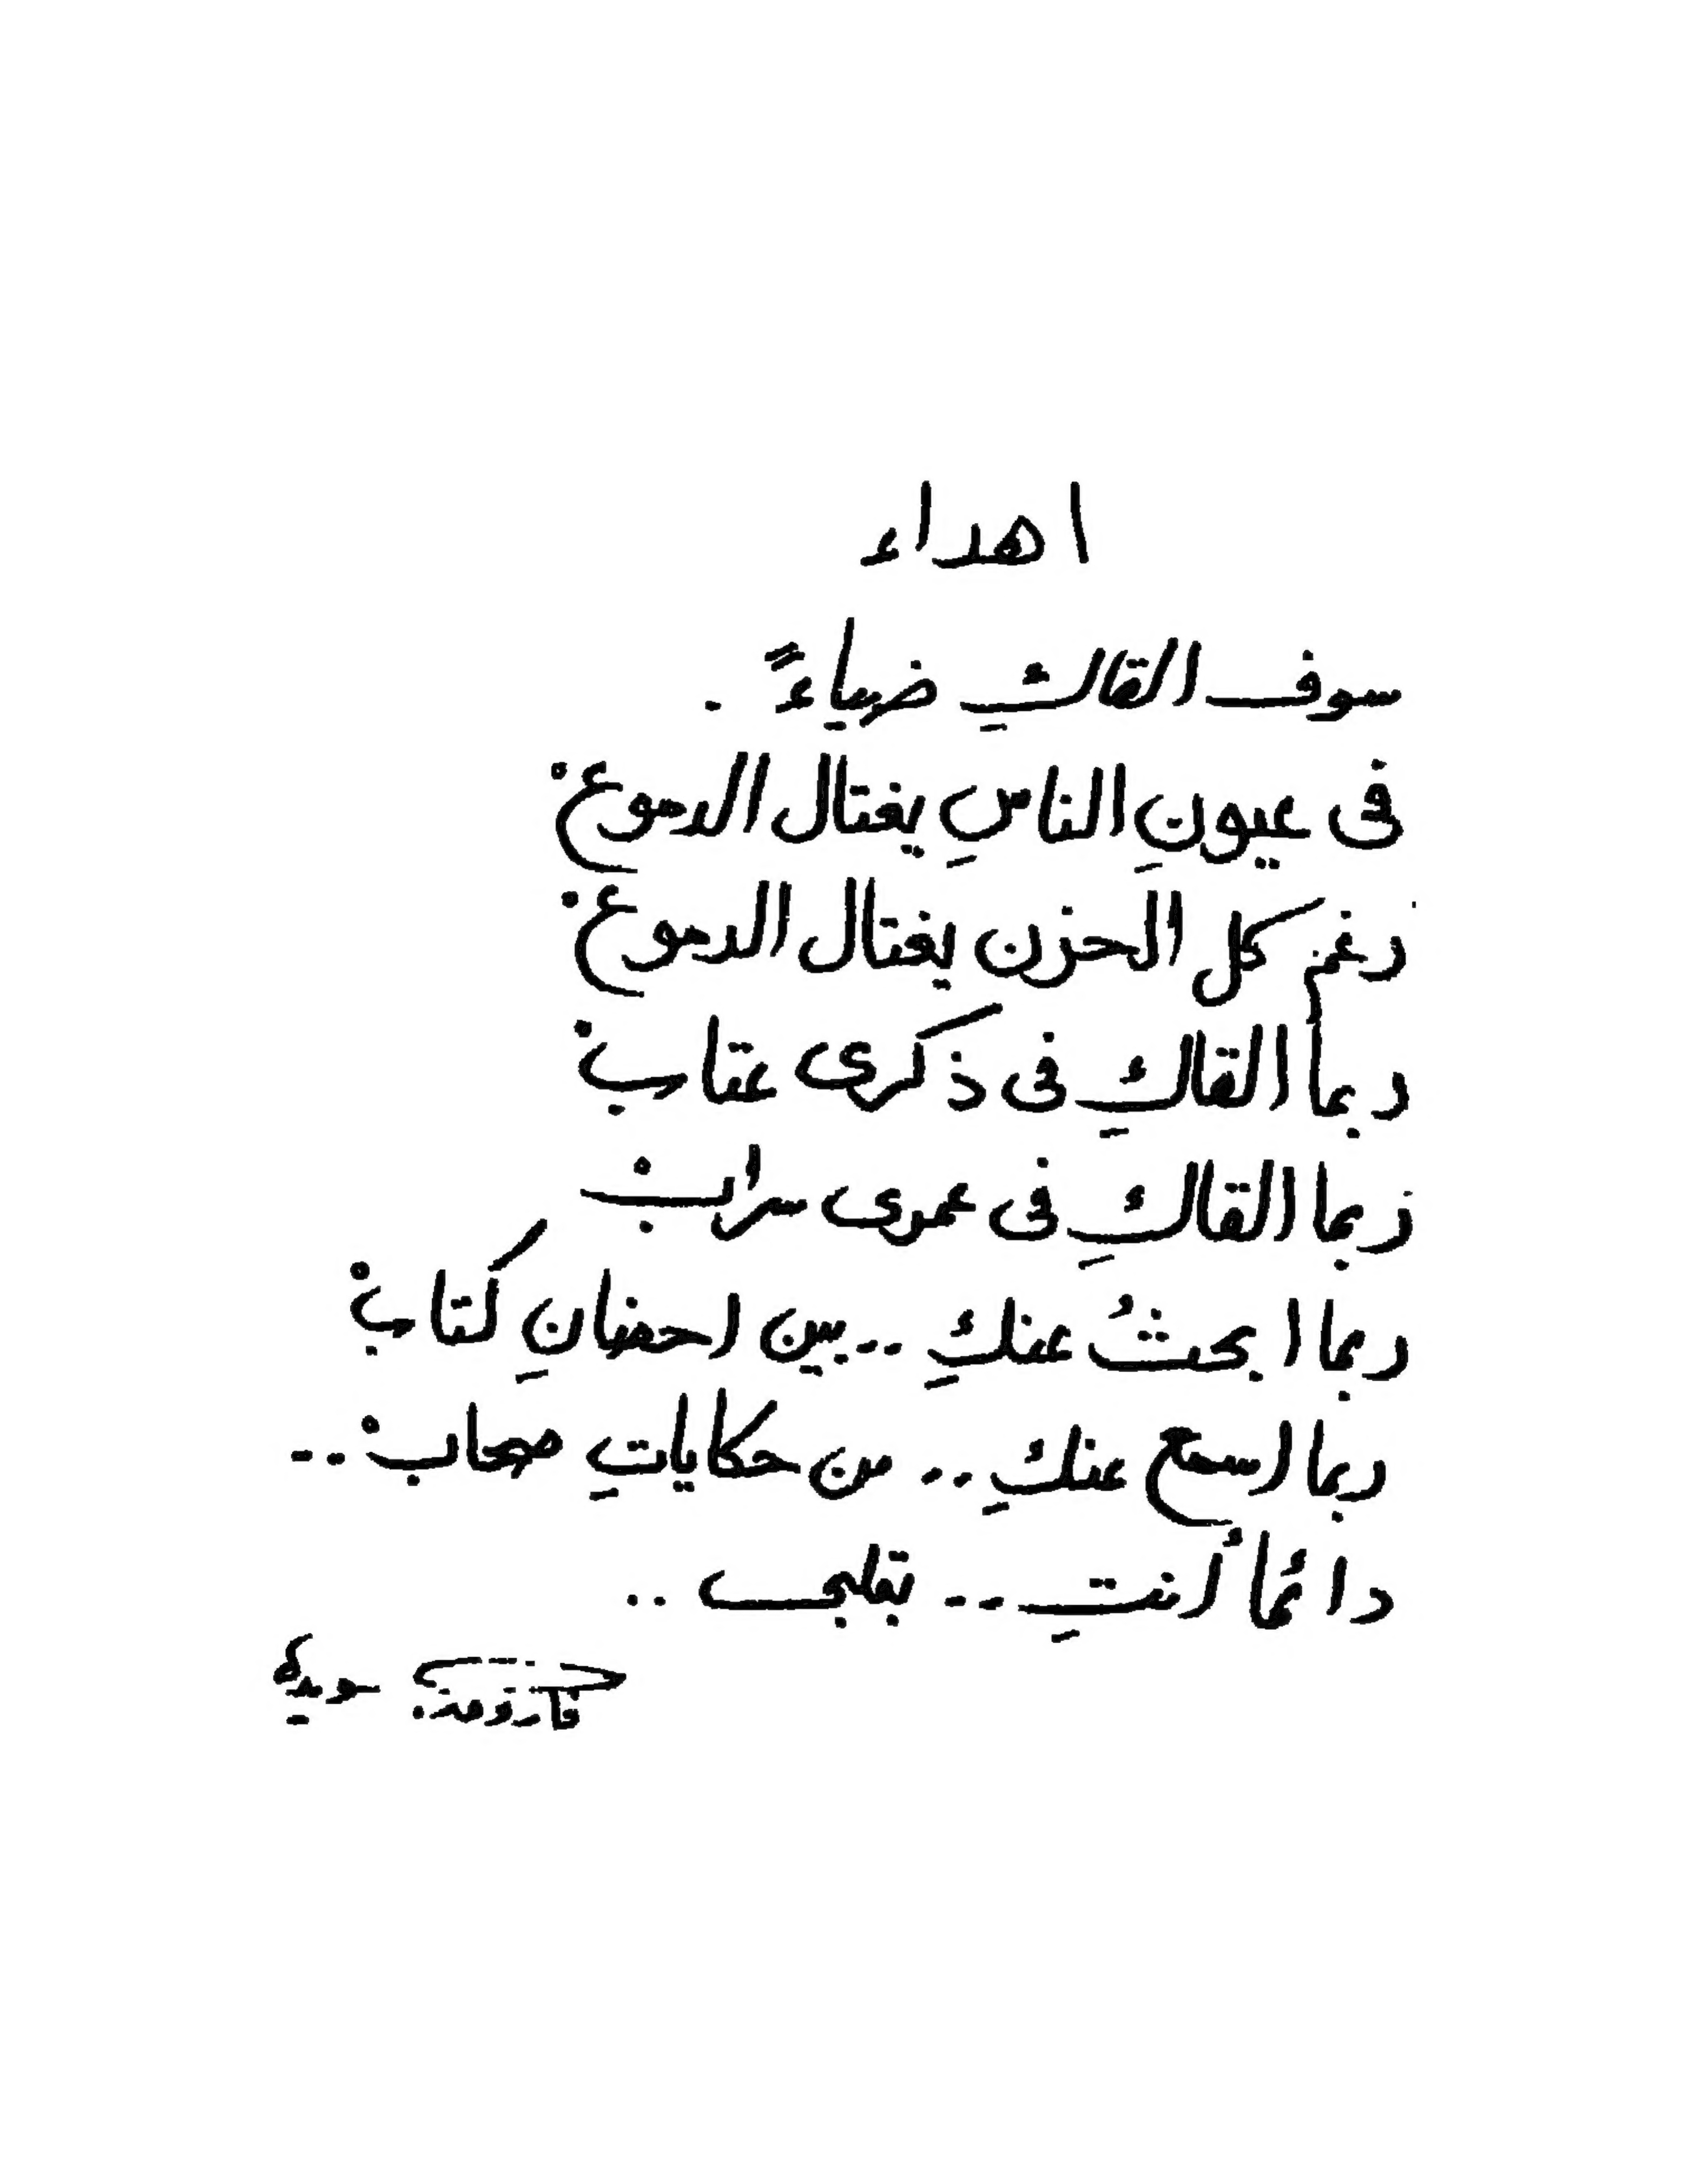 اهداء
سوف القاكِ ضياءً .
فى عيونِ الناسِ يغتال الدموعْ
رغم كل الحزن يغتال الدموعْ
ربما القاكِ فى ذكرى عتابْ
ربما القاكِ فى عمرى سرابْ
ربما ابحثُ عنكِ .. بين احضانِ كتابْ
ربما اسمع عنكِ .. من حكاياتِ صحابْ ..
دائماً أنتِ .. بقلبى ..
فاروق جويدة